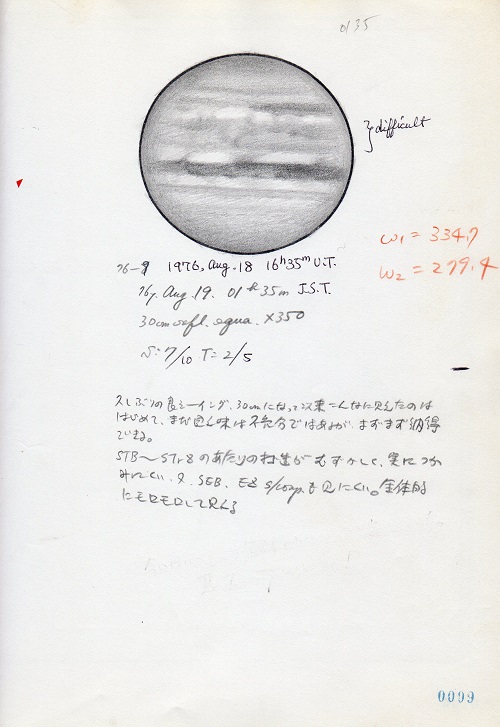 0135
difficult
ω1 = 334.7
ω2 = 279.4
76-9 1976, Aug. 18 16h35m U.T.
76y. Aug. 19. 01h35m J.S.T.
30cm refl. equa. ×350
S: 7/10 T: 2/5
久しぶりの良シーイング、30cmになって以来こんなに見えたのは
はじめて、まだ色ん味は不充分ではあるが、まずまず納得
できる。
STB～STrZのあたりの構造がむずかしく、実につか
みにくい、又、SEB、EZ S/comp.も見にくい。全体的
にモロモロして見える
0099